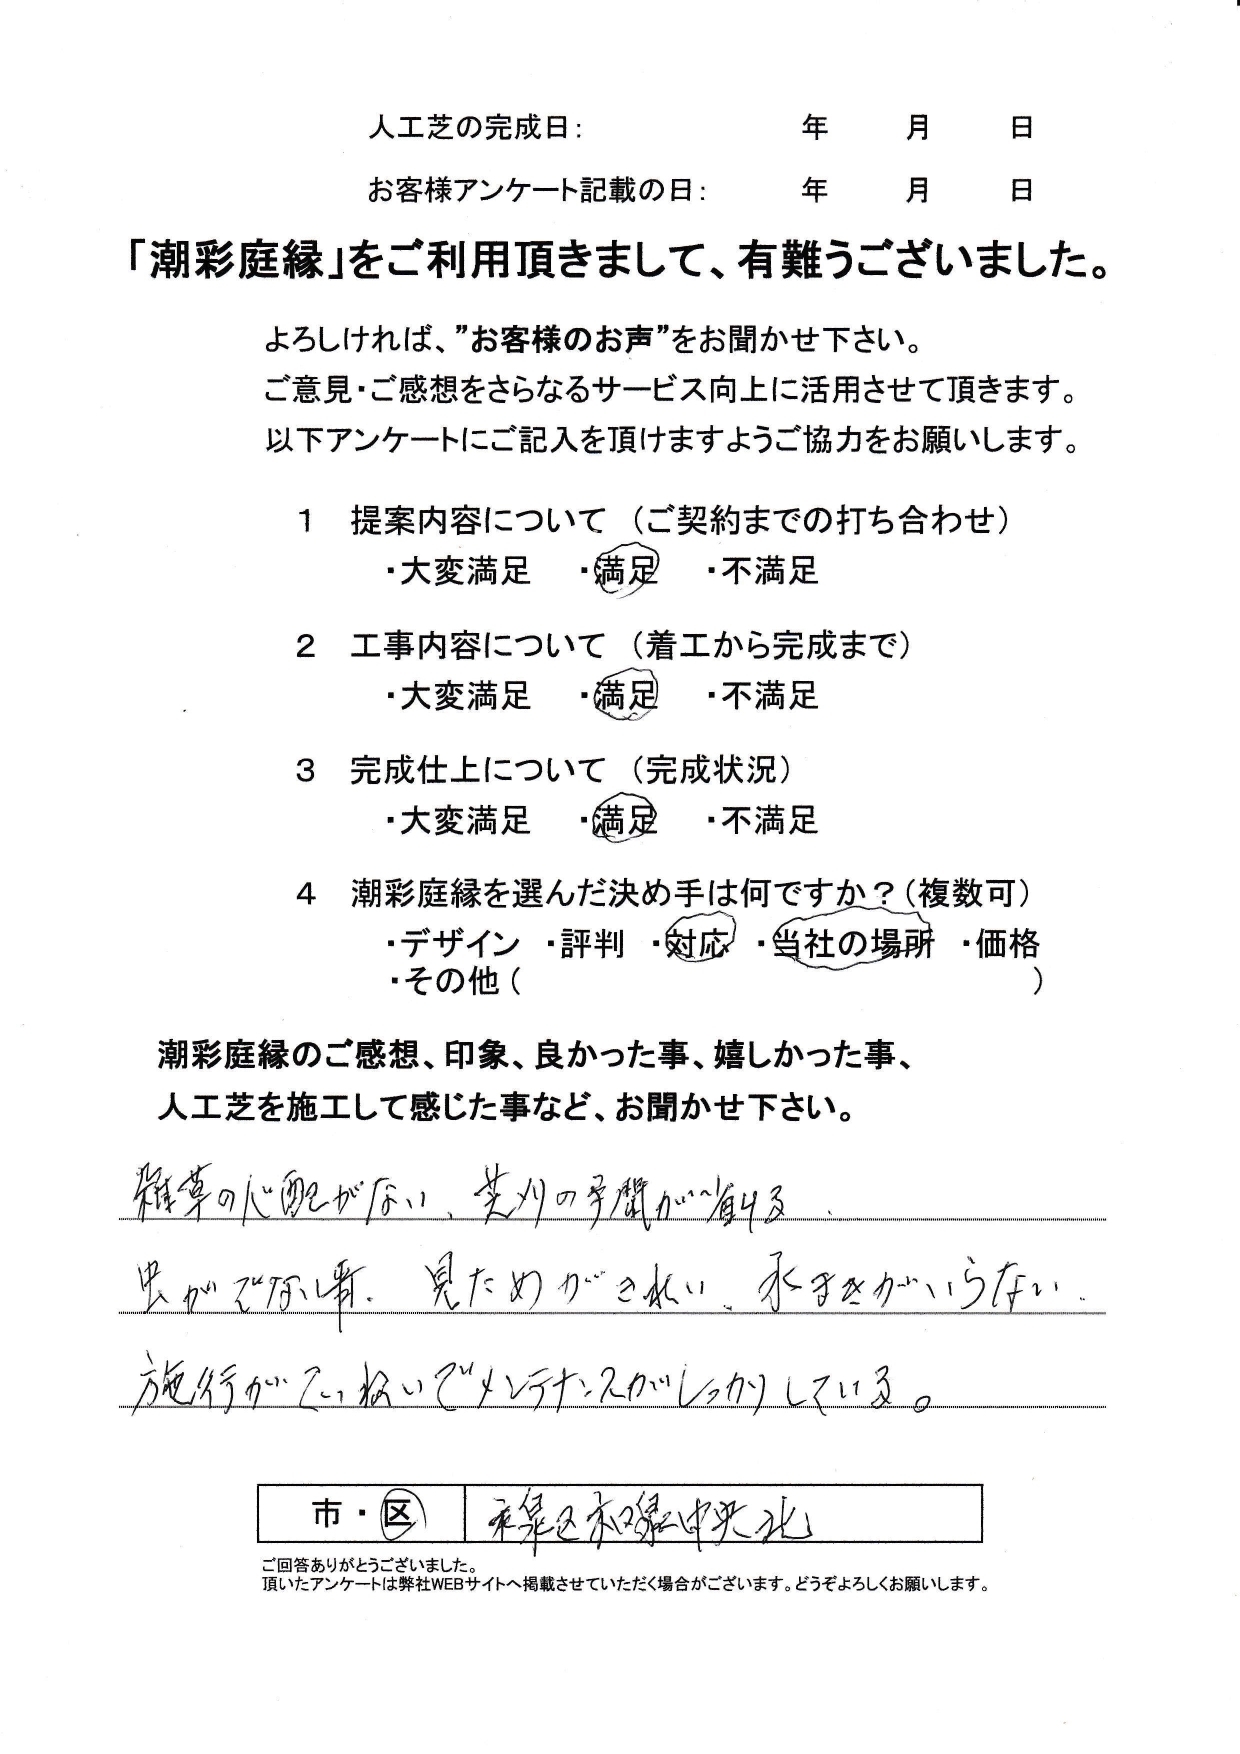 人工芝の完成日: 年 月 日
お客様アンケート記載の日: 年 月 日
「潮彩庭縁」をご利用頂きまして、有難うございました。
よろしければ、”お客様のお声”をお聞かせ下さい。
ご意見・ご感想をさらなるサービス向上に活用させて頂きます。
以下アンケートにご記入を頂けますようご協力をお願いします。
1 提案内容について（ご契約までの打ち合わせ）
・大変満足 ・満足 ・不満足
2 工事内容について（着工から完成まで）
・大変満足 ・満足 ・不満足
3 完成仕上について（完成状況）
・大変満足 ・満足 ・不満足
4 潮彩庭縁を選んだ決め手は何ですか？（複数可）
・デザイン ・評判 ・対応 ・当社の場所 ・価格
・その他（ ）
潮彩庭縁のご感想、印象、良かった事、嬉しかった事、
人工芝を施工して感じた事など、お聞かせ下さい。
雑草の心配がない、芝刈の手間が省ける
虫がでない事、見ためがきれい、水まきがいらない
施行がていねいでメンテナンスがしっかりしている。
市・区 中央北
ご回答ありがとうございました。
頂いたアンケートは弊社WEBサイトへ掲載させていただく場合がございます。どうぞよろしくお願いします。